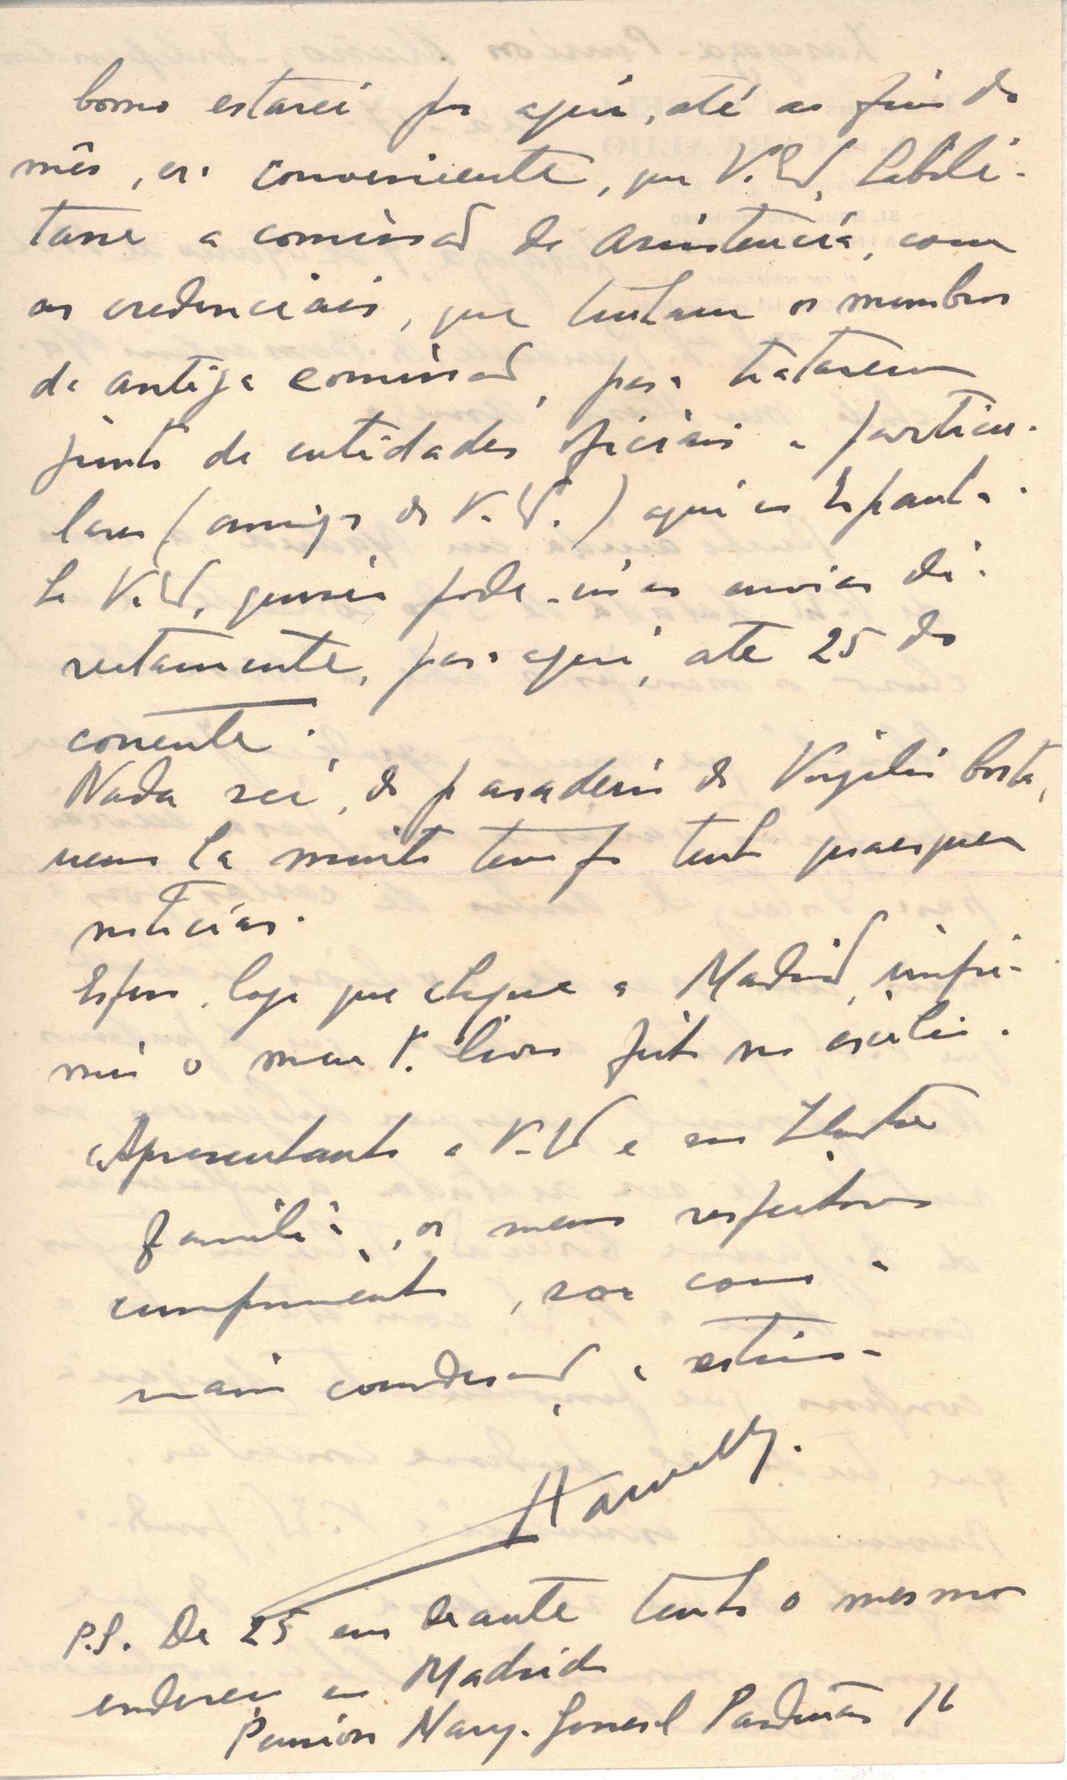 Como estarei por aqui, até ao fim do
mês, era conveniente, que V. Ex.ª habili-
tasse a comissão de Assistencia, com
as credenciais, que tinham os membros
da antiga comissão, para tratarem
junto de entidades oficiais e particu-
lares (amigos de V. Ex.ª) aqui em Espanha.
Se V. Ex.ª, quiser pode-m'as enviar di-
rectamente, para aqui, até 25 do
corrente.
Nada sei, do paradeiro do Virgilio Costa,
nem ha muito tempo tenho quaesquer
noticias.
Espero, logo que chegue a Madrid, impri-
mir o meu 1.º livro feito no exilio.
Apresentando a V. Ex.ª e sua Ilustre
familia, os meus respeitosos
cumprimentos, sou com a
maior consideração e estima
P.S. De 25 em deante tenho o mesmo
endereço em Madrid
Pension Nary. General Pardiñas 16